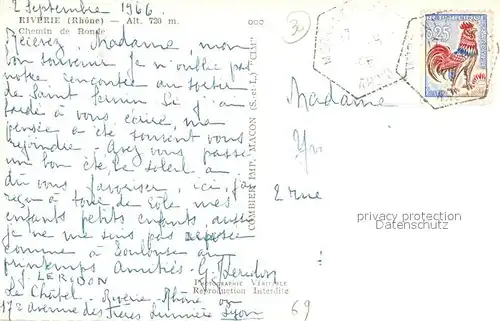 2 Septembre 1966
RIVERIE (Rhône) — Alt. 720 m.
Chemin de Ronde
Recevez, Madame, mon
bon souvenir je n'oublie pas
notre rencontre au sortir
de Saint Sernin Si j'ai
tardé à vous écrire, ma
pensée a été souvent vous
rejoindre - Avez vous passé
un bon été, le soleil a
dû vous favoriser, ici, j'ai
reçu à tour de rôle mes
enfants petits enfants aussi
je ne me suis pas reposée
comme à Toulouse au
printemps Amitiés - G. Lerudon
J. LERUDON
Le Châtel - Riverie - Rhône ou
172 avenue des Frères Lumière Lyon
COMBIER IMP. MACON (S.-et-L.) "CIM"
PHOTOGRAPHIE VÉRITABLE
Reproduction Interdite
3
0,25
Madame
2 rue
privacy protection
Datenschutz
69